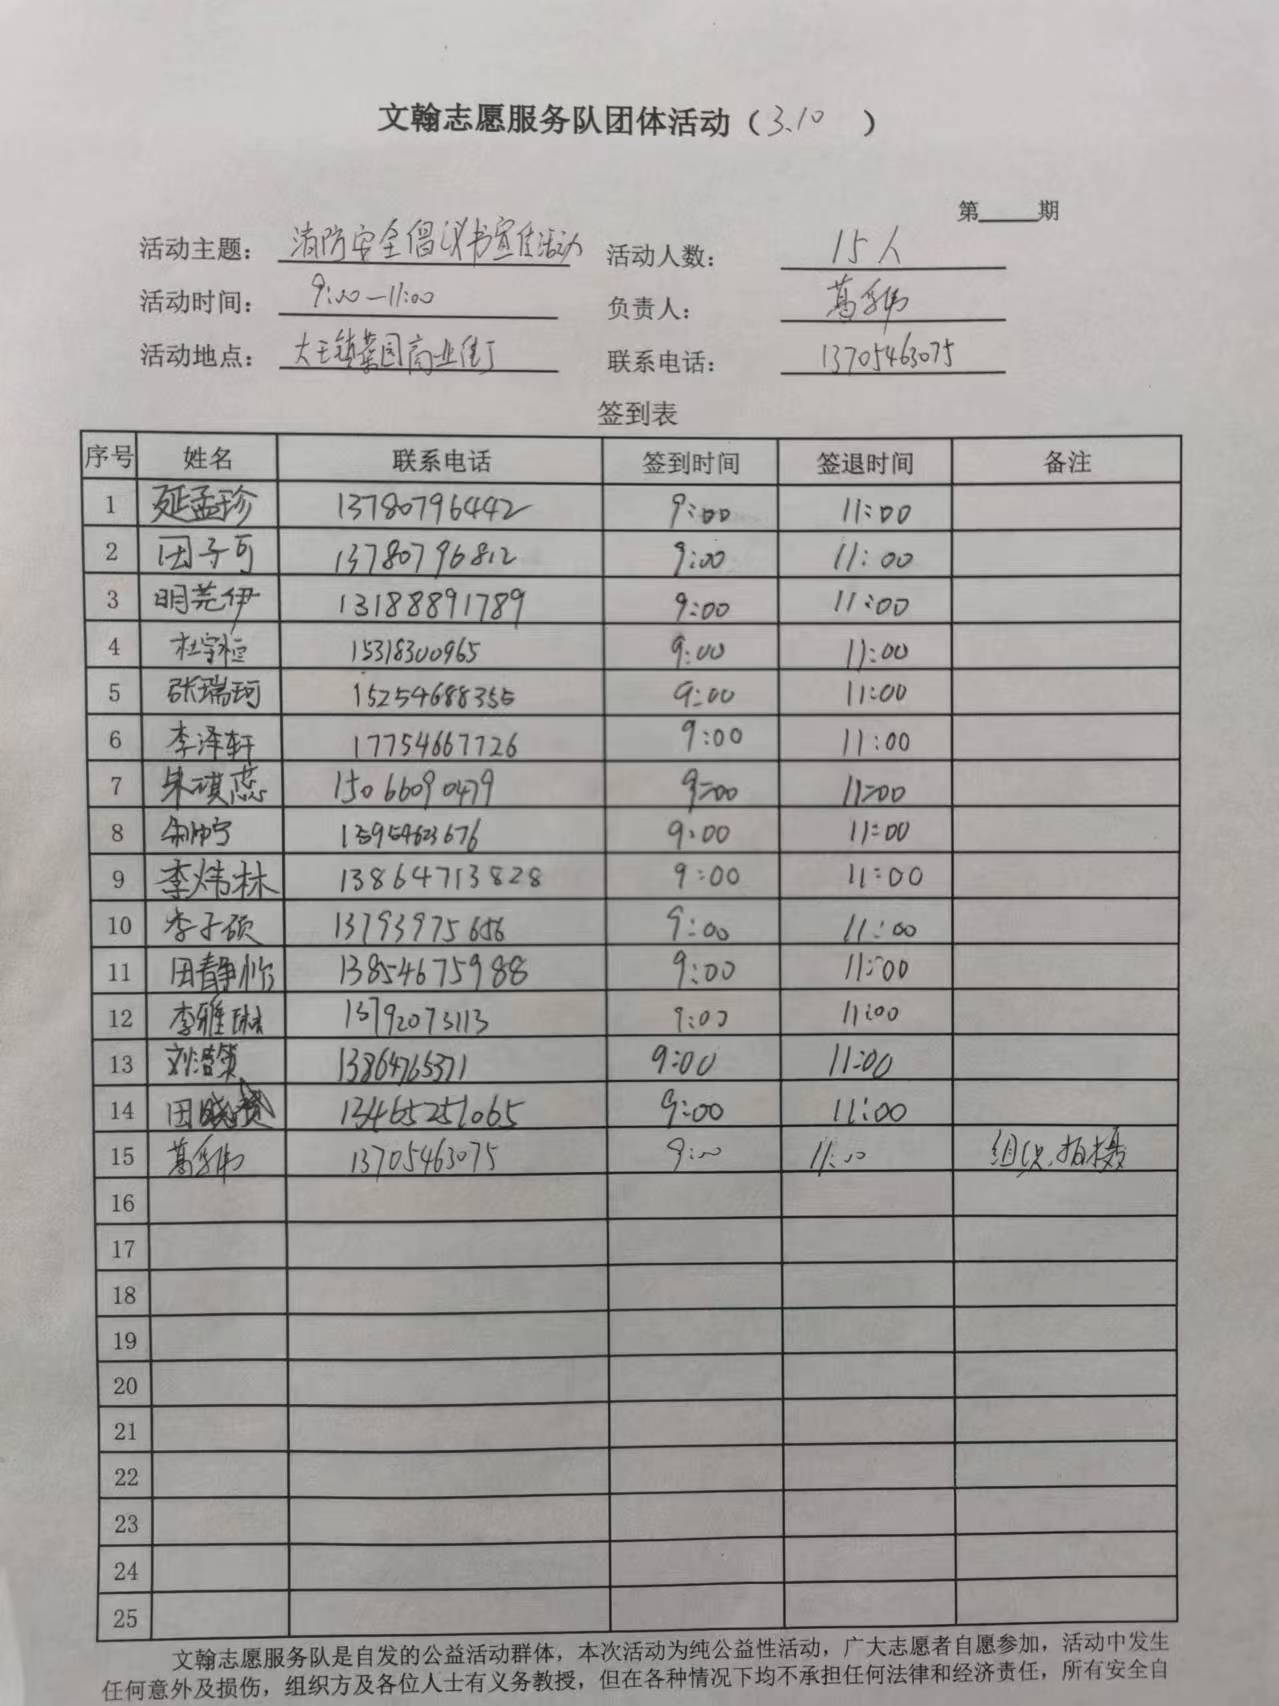 文翰志愿服务队团体活动（3.10）
第_____期
活动主题：消防安全倡议书宣传活动 活动人数：15人
活动时间：9:00—11:00 负责人：葛学伟
活动地点：大王镇菜园商业街 联系电话：13705463075
签到表
序号 姓名 联系电话 签到时间 签退时间 备注
1 延孟珍 13780796442 9:00 11:00
2 田子可 13780796812 9:00 11:00
3 明芫伊 13188891789 9:00 11:00
4 杜宇恒 15318300965 9:00 11:00
5 张瑞珂 15254688355 9:00 11:00
6 李泽轩 17754667726 9:00 11:00
7 朱琪蕊 15066090479 9:00 11:00
8 13954623676 9:00 11:00
9 李炜林 13864713828 9:00 11:00
10 李子硕 13793975656 9:00 11:00
11 田静怡 13854675988 9:00 11:00
12 李雅琳 13792073113 9:00 11:00
13 13864765371 9:00 11:00
14 13465251065 9:00 11:00
15 葛学伟 13705463075 9:00 11:00 组织、拍摄
16
17
18
19
20
21
22
23
24
25
文翰志愿服务队是自发的公益活动群体，本次活动为纯公益性活动，广大志愿者自愿参加，活动中发生
任何意外及损伤，组织方及各位人士有义务教授，但在各种情况下均不承担任何法律和经济责任，所有安全自